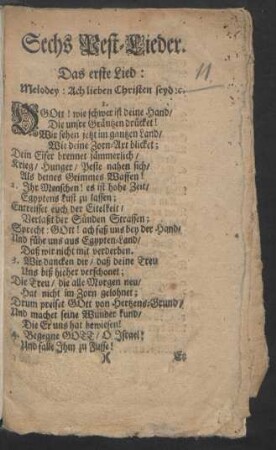 Sechs Pest-Lieder.
11
Das erste Lied:
Melodey: Ach lieben Christen seyd ꝛc.
1.
O GOtt! wie schwer ist deine Hand/
Die unsre Gräntzen drücket!
Wir sehen jetzt im gantzen Land/
Wie deine Zorn-Art blicket;
Dein Eifer brennet jämmerlich/
Krieg/ Hunger/ Peste nahen sich/
Als deines Grimmes Waffen!
2. Ihr Menschen! es ist hohe Zeit/
Egyptens Lust zu lassen;
Entreisset euch der Eitelkeit/
Verlast der Sünden Strassen;
Sprecht: GOtt! ach faß uns bey der Hand/
Und führ uns aus Egypten-Land/
Daß wir nicht mit verderben.
3. Wir dancken dir/ daß deine Treu
Uns biß hieher verschonet;
Die Treu/ die alle Morgen neu/
Hat nicht im Zorn gelohnet;
Drum preiset GOtt von Hertzens-Grund/
Und machet seine Wunder kund/
Die Er uns hat bewiesen!
4. Begegne GOTT/ O Israel!
Und falle Ihm zu Fusse!
X Er